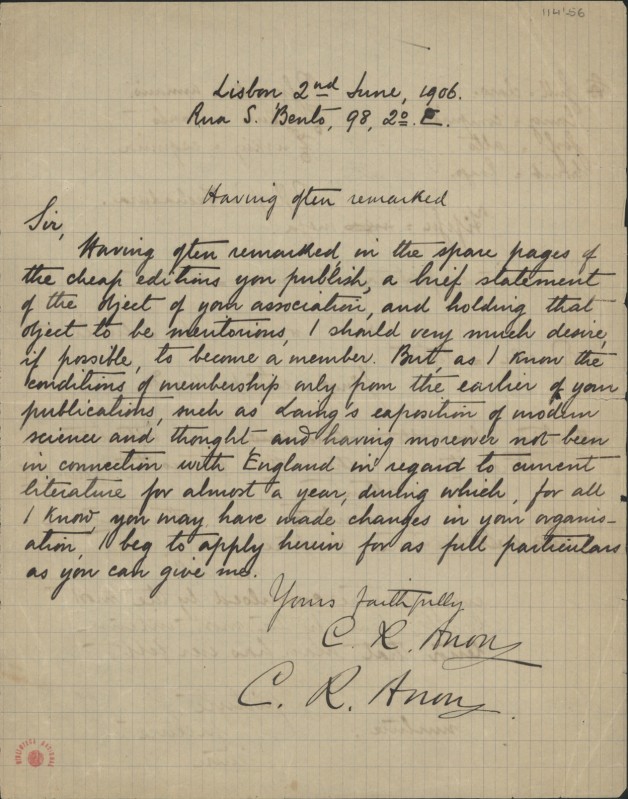 114¹-56
Lisbon 2nd June, 1906.
Rua S. Bento, 98, 2º E.
Having often remarked
Sir,
Having often remarked, in the spare pages of
the cheap editions you publish, a brief statement
of the object of your association, and holding that
object to be meritorious, I should very much desire,
if possible, to become a member. But, as I know the
conditions of membership only from the earlier of your
publications, such as Laing's exposition of modern
science and thought, and having moreover not been
in connection with England in regard to current
literature for almost a year, during which, for all
I know, you may have made changes in your organis-
ation, I beg to apply herein for as full particulars
as you can give me.
Yours faithfully
C. R. Anon
C. R. Anon